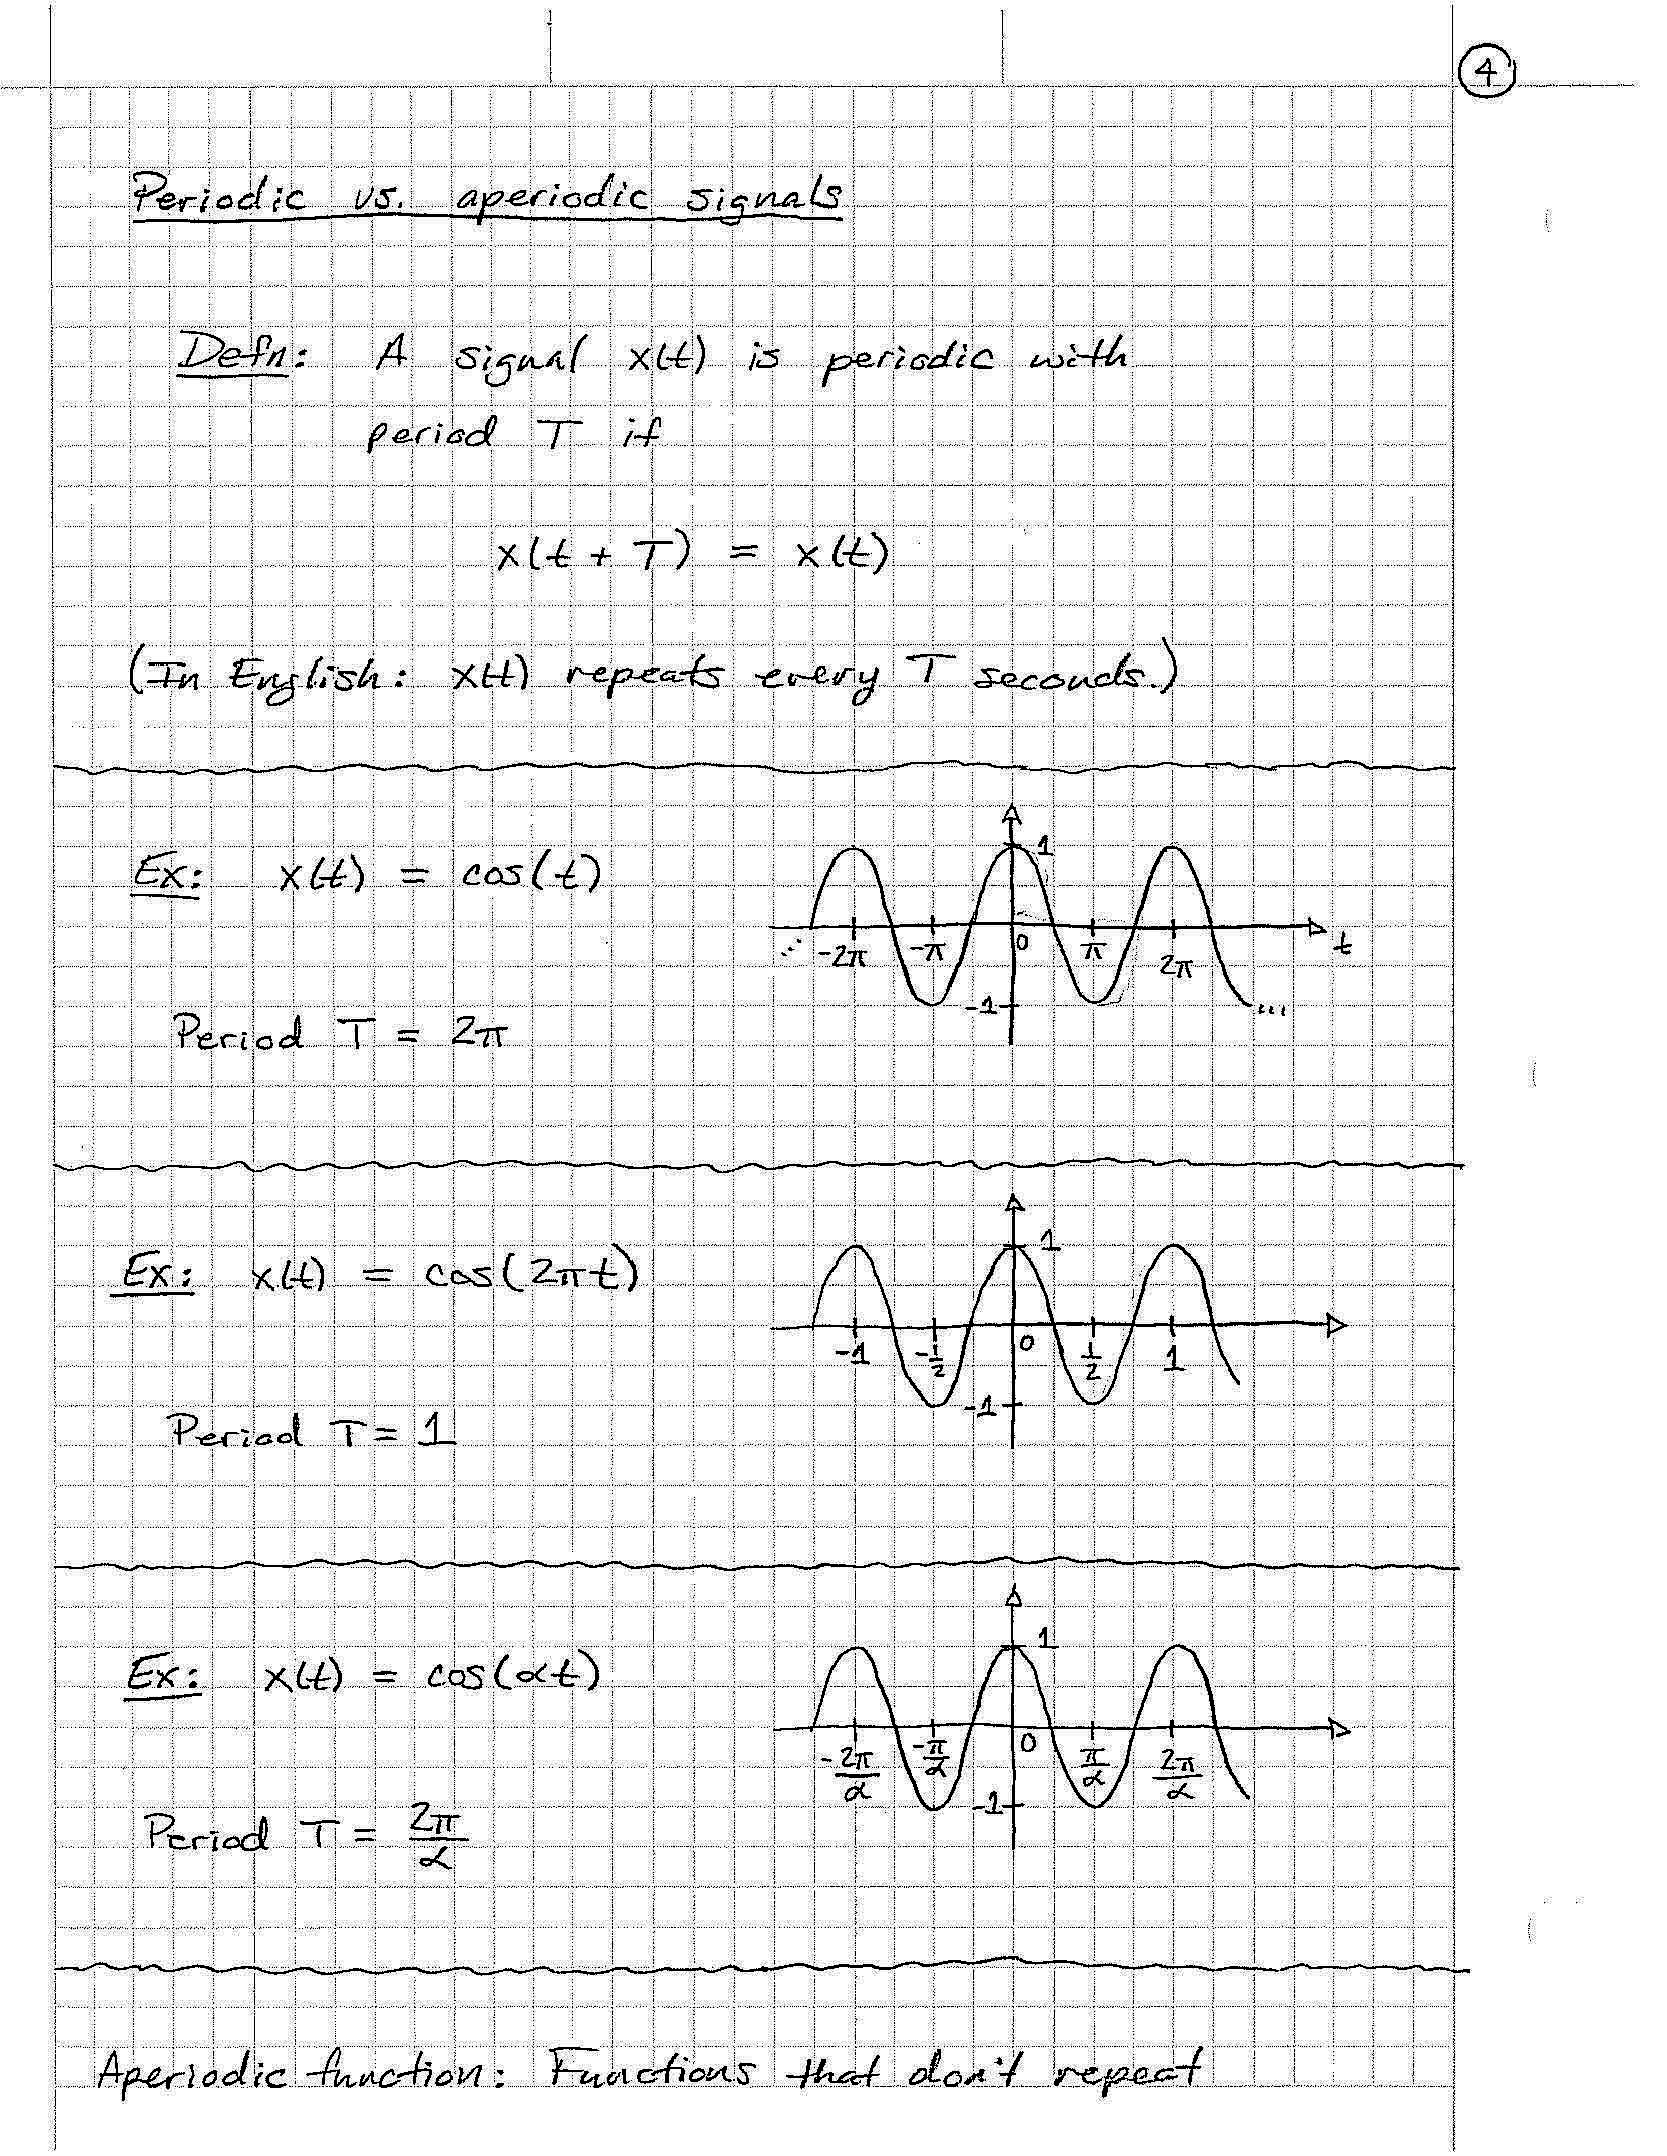 4
Periodic vs. aperiodic signals
Defn: A signal x(t) is periodic with
period T if
x(t + T) = x(t)
(In English: x(t) repeats every T seconds.)
Ex: x(t) = cos(t)
1
... -2π -π 0 π 2π t
-1 ...
Period T = 2π
Ex: x(t) = cos(2πt)
1
-1 -1/2 0 1/2 1
-1
Period T = 1
Ex: x(t) = cos(αt)
1
-2π/α -π/α 0 π/α 2π/α
-1
Period T = 2π/α
Aperiodic function: Functions that don't repeat